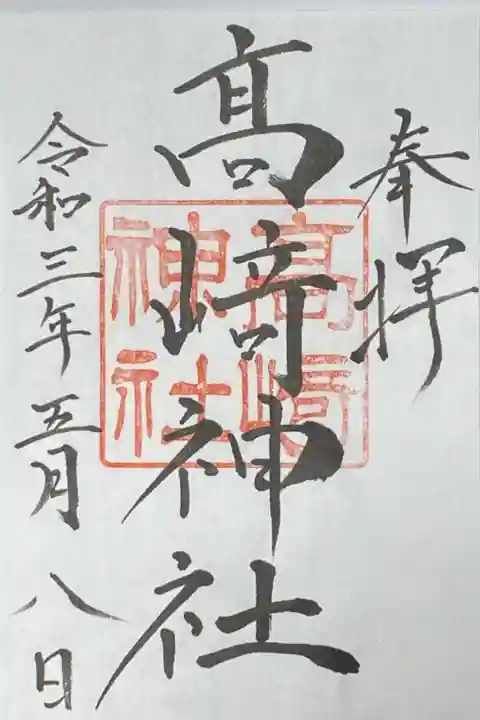 奉拝
髙﨑神社
髙﨑
神社
令和三年五月八日